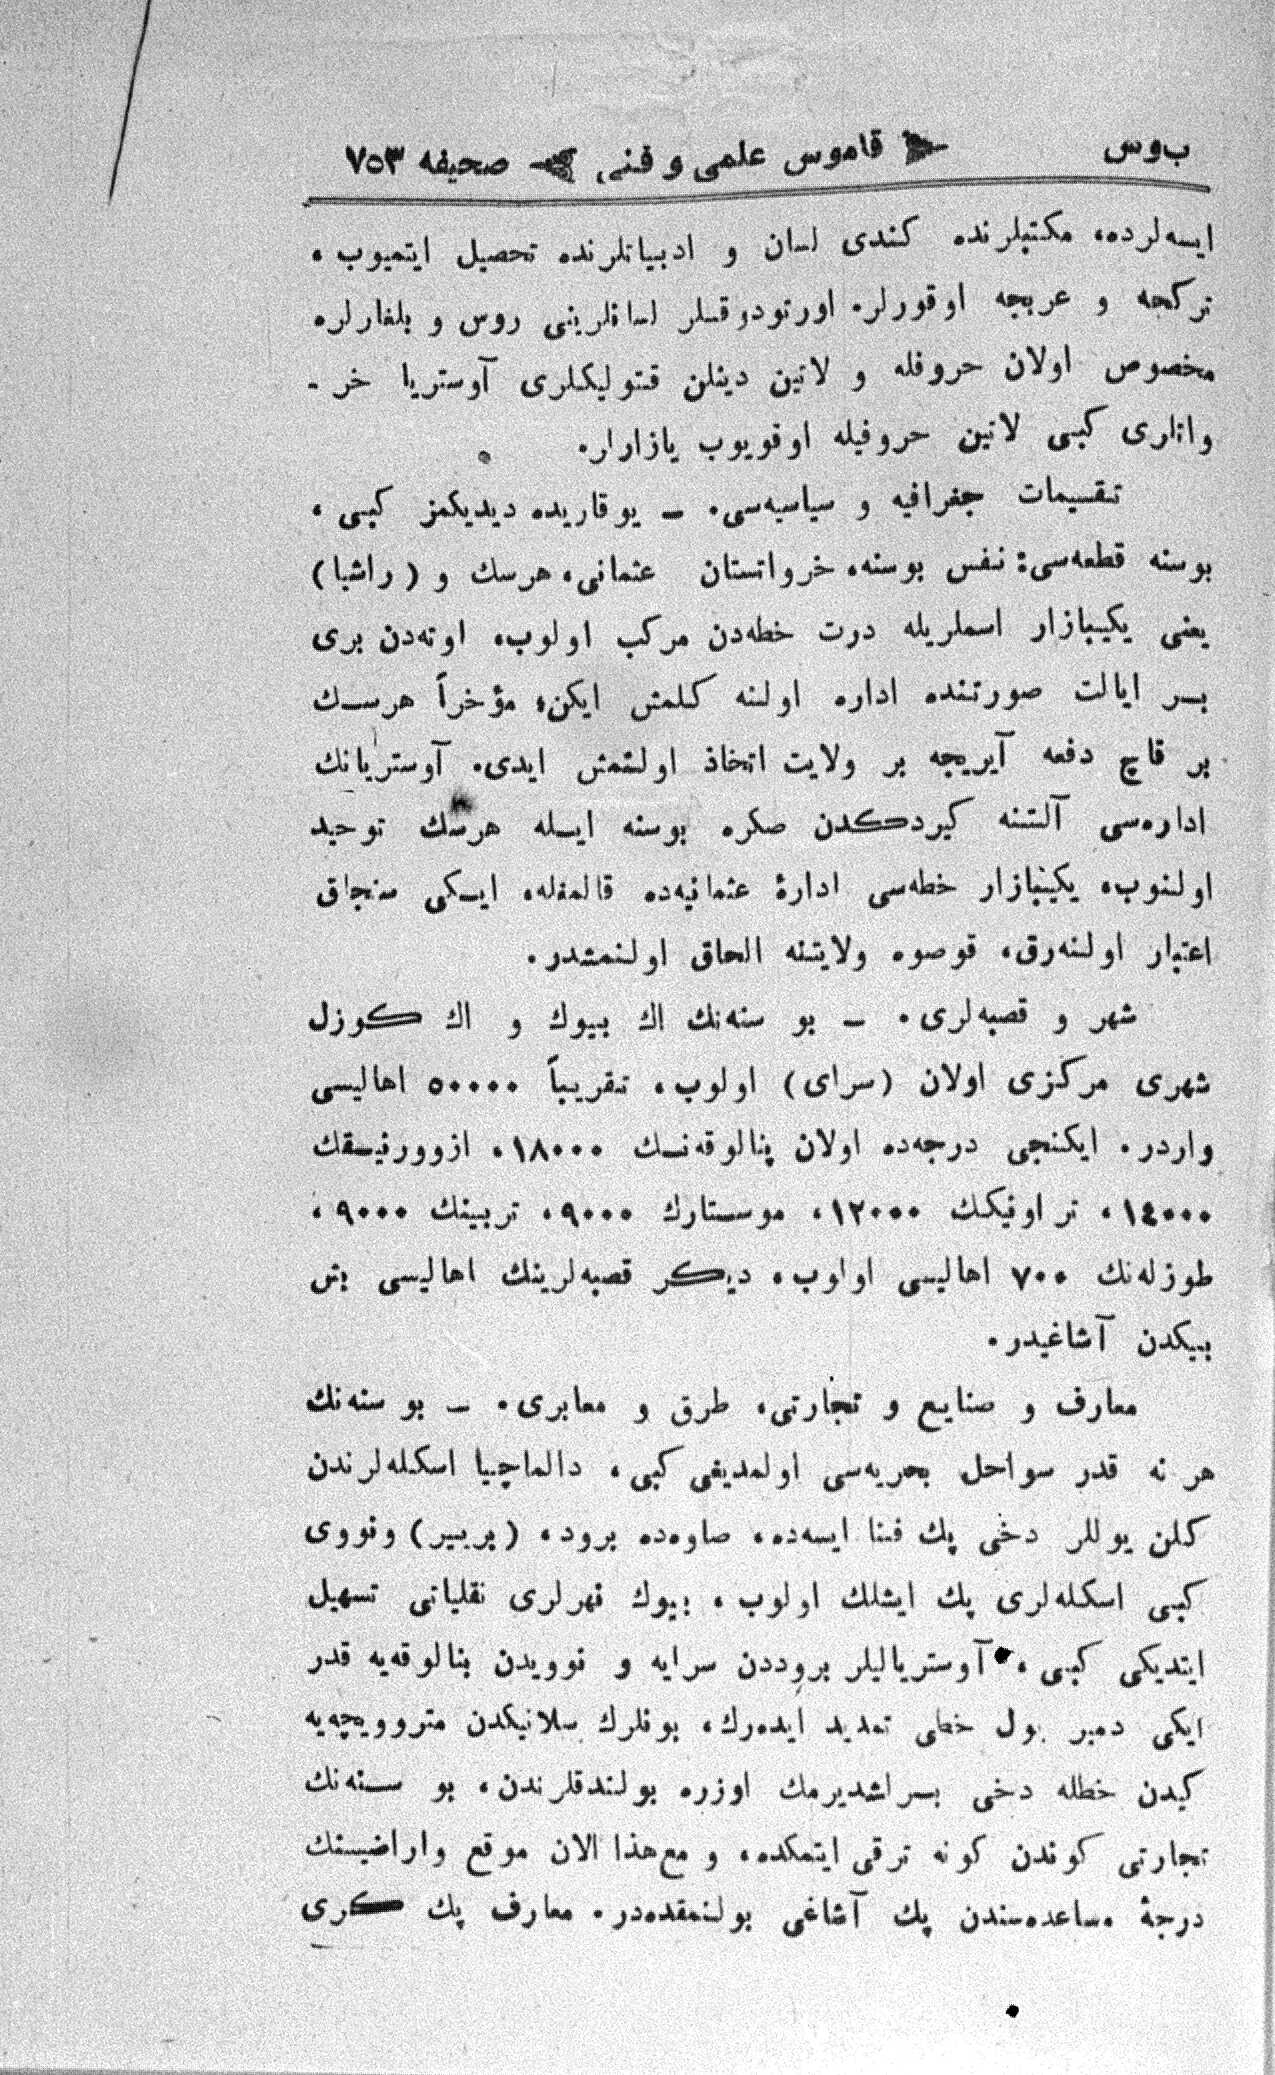 ب‌وس قاموس علمی و فنی صحیفه ٧٥٣
ایسه‌لرده، مكتبلرنده كندی لسان و ادبیاتلرنده تحصیل ایتمیوب،
تركجه و عربجه اوقورلر. اورتودوقسلر لسانلرینی روس و بلغارلره
مخصوص اولان حروفله و لاتین دینلن قتولیكلری آوستریا خر -
واتلری كبی لاتین حروفیله اوقویوب یازارلر.
تقسیمات جغرافیه و سیاسیه‌سی. – یوقاریده دیدیكمز كبی،
بوسنه قطعه‌سی: نفس بوسنه، خرواتستان عثمانی، هرسك و (راشیا)
یعنی یكیبازار اسملریله درت خطه‌دن مركب اولوب، اوته‌دن بری
بر ایالت صورتنده اداره اولنه كلمش ایكن، مؤخراً هرسك
بر قاچ دفعه آیریجه بر ولایت اتخاذ اولنمش ایدی. آوستریانك
اداره‌سی آلتنه كیردكدن صكره بوسنه ایله هرسك توحید
اولنوب، یكیبازار خطه‌سی ادارۀ عثمانیه‌ده قالمغله، ایكی سنجاق
اعتبار اولنه‌رق، قوصوه ولایتنه الحاق اولنمشدر.
شهر و قصبه‌لری. – بوسنه‌نك اك بیوك و اك كوزل
شهری مركزی اولان (سرای) اولوب، تقریباً ٥٠٠٠٠ اهالیسی
واردر. ایكنجی درجه‌ده اولان پنالوقه‌نك ١٨٠٠٠، ازوورنیقك
١٤٠٠٠، تراونیكك ١٢٠٠٠، موستارك ٩٠٠٠، تربینك ٩٠٠٠،
طوزله‌نك ٧٠٠ اهالیسی اولوب، دیكر قصبه‌لرینك اهالیسی بش
بیكدن آشاغیدر.
معارف و صنایع و تجارتی، طرق و معابری. – بوسنه‌نك
هر نه قدر سواحل بحریه‌سی اولمدیغی كبی، دالماچیا اسكله‌لرندن
كلن یوللر دخی پك فنا ایسه‌ده، صاوه‌ده برود، (بربیر) ونووی
كبی اسكله‌لری پك ایشلك اولوب، بیوك نهرلری نقلیاتی تسهیل
ایتدیكی كبی، آوستریالیلر بروددن سرایه و نوویدن بنالوقه‌یه قدر
ایكی دمیر یول خطی تمدید ایده‌رك، بونلرك سلانیكدن متروویچه‌یه
كیدن خطله دخی براشدیرمك اوزره بولندقلرندن، بوسنه‌نك
تجارتی كوندن كونه ترقی ایتمكده، و مع‌هذا الان موقع واراضیسنك
درجۀ مساعده‌سندن پك آشاغی بولنمقده‌در. معارف پك كری